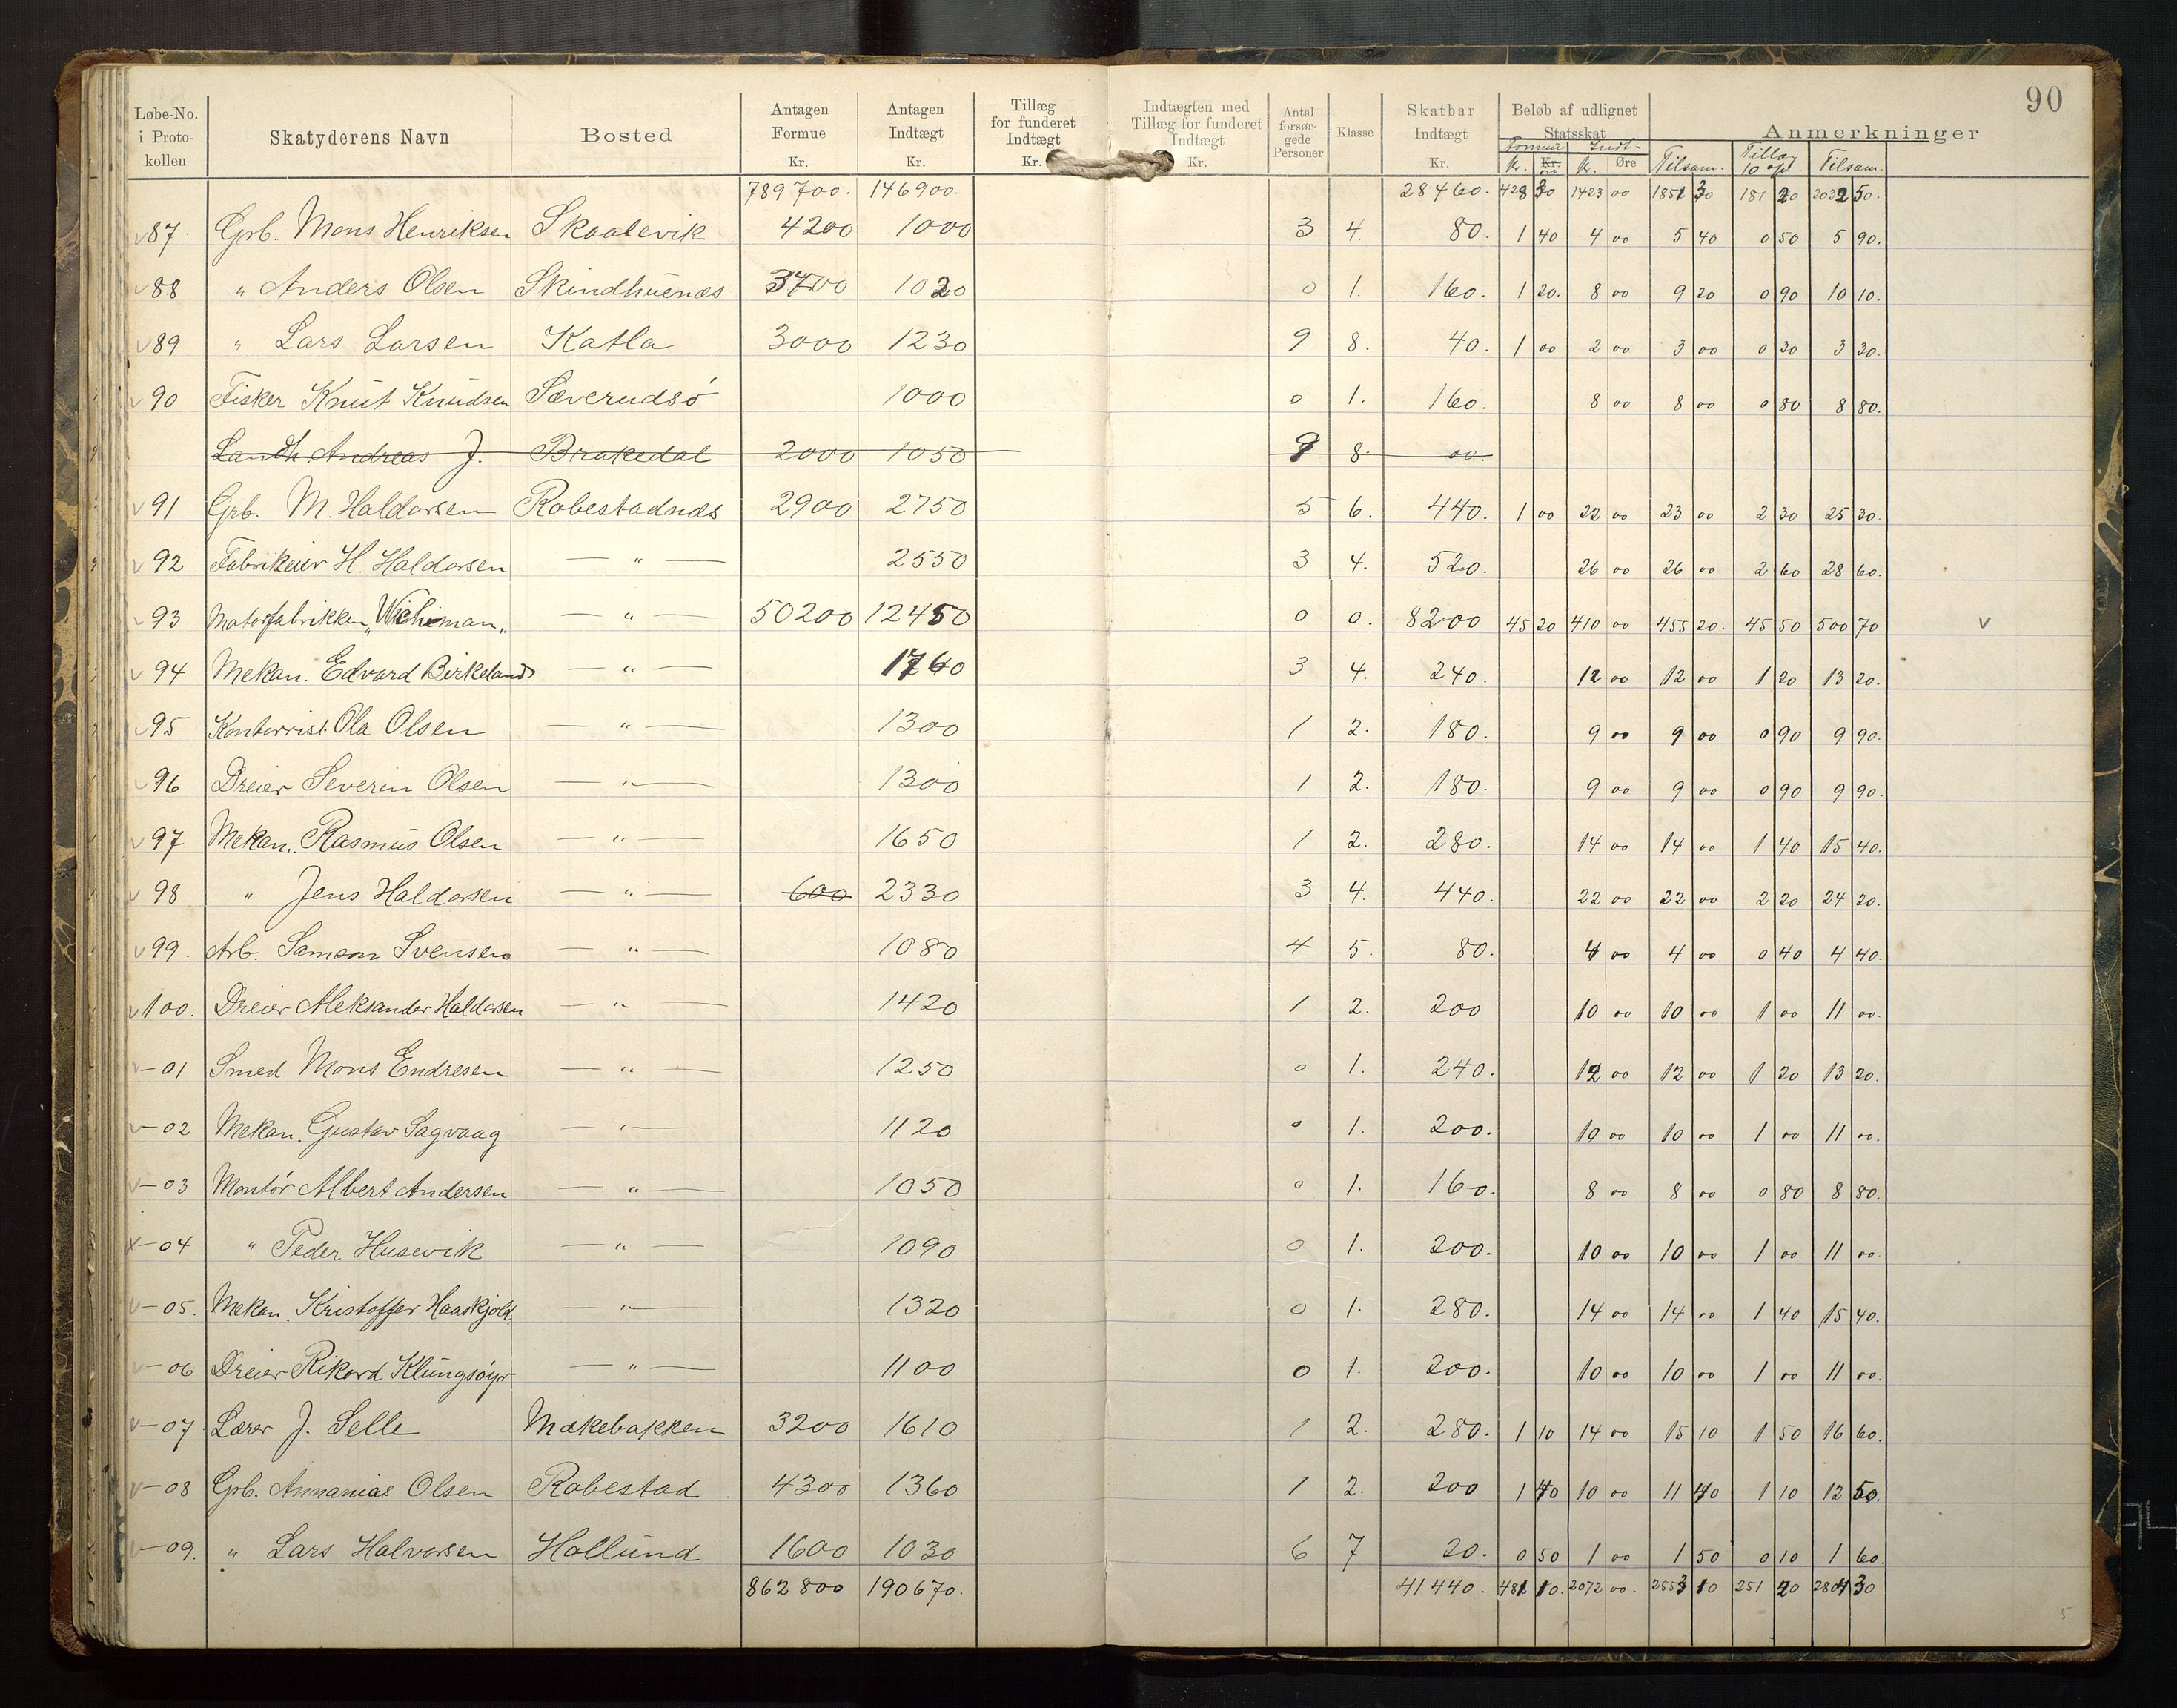 90
Løbe-No. i Proto-kollen | Skatyderens Navn | Bosted | Antagen Formue Kr. | Antagen Indtægt Kr. | Tillæg for funderet Indtægt Kr. | Indtægten med Tillæg for funderet Indtægt Kr. | Antal forsør-gede Personer | Klasse | Skatbar Indtægt Kr. | Beløb af udlignet Statsskat Formue Kr. | Indt. Kr. Øre | Anmerkninger Tilsam. | Tillæg 10 % | Tilsam.
789700. 146900. 28460. 428 30 1423 00 1851 30 181 20 2032 50.
87. Grb. Mons Henriksen Skaalevik 4200 1000 3 4. 80. 1 40 4 00 5 40 0 50 5 90.
88 " Anders Olsen Skindhuenæs 3700 1020 0 1. 160. 1 20. 8 00 9 20 0 90 10 10.
89 " Lars Larsen Katla 3000 1230 9 8. 40. 1 00 2 00 3 00 0 30 3 30.
90 Fisker Knut Knudsen Sæverudsø 1000 0 1. 160. 8 00 8 00 0 80 8 80.
Landh. Andreas J. Brakedal 2000 1050 9 8. 00.
91 Grb. M. Haldorsen Robestadnæs 2900 2750 5 6. 440. 1 00 22 00 23 00 2 30 25 30.
92 Fabrikeier H. Haldorsen — " — 2550 3 4. 520. 26 00 26 00 2 60 28 60.
93 Motorfabrikken „Wichman„ — " — 50200 12450 0 0. 8200 45 20 410 00 455 20. 45 50 500 70 v
94 Mekan. Edvard Birkeland — " — 1760 3 4. 240. 12 00 12 00 1 20 13 20.
95 Kontorrist. Ola Olsen — " — 1300 1 2. 180. 9 00 9 00 0 90 9 90.
96 Dreier Severin Olsen — " — 1300 1 2. 180. 9 00 9 00 0 90 9 90.
97 Mekan. Rasmus Olsen — " — 1650 1 2. 280. 14 00 14 00 1 40 15 40.
98 " Jens Haldorsen — " — 600 2330 3 4. 440. 22 00 22 00 2 20 24 20.
99. Arb. Samson Svensen — " — 1080 4 5. 80. 4 00 4 00 0 40 4 40.
100. Dreier Aleksander Haldorsen — " — 1420 1 2. 200 10 00 10 00 1 00 11 00.
—01 Smed Mons Endresen — " — 1250 0 1. 240. 12 00 12 00 1 20 13 20.
—02 Mekan. Gustav Sagvaag — " — 1120 0 1. 200. 10 00 10 00 1 00 11 00.
—03 Montør Albert Andersen — " — 1050 0 1. 160. 8 00 8 00 0 80 8 80.
—04 " Peder Husevik — " — 1090 0 1. 200. 10 00 10 00 1 00 11 00
—05. Mekan. Kristoffer Haaskjold — " — 1320 0 1. 280. 14 00 14 00 1 40 15 40.
—06 Dreier Rikard Klungsøyr — " — 1100 0 1. 200. 10 00 10 00 1 00 11 00.
—07. Lærer J. Selle Mækebakken 3200 1610 1 2. 280. 1 10 14 00 15 10 1 50 16 60.
—08 Grb. Annanias Olsen Robestad 4300 1360 1 2. 200 1 40 10 00 11 40 1 10 12 50.
—09. " Lars Halvorsen Hollund 1600 1030 6 7 20. 0 50 1 00 1 50 0 10 1 60.
862800 190670. 41440. 481 10. 2072 00. 2553 10 251 20 2804 30